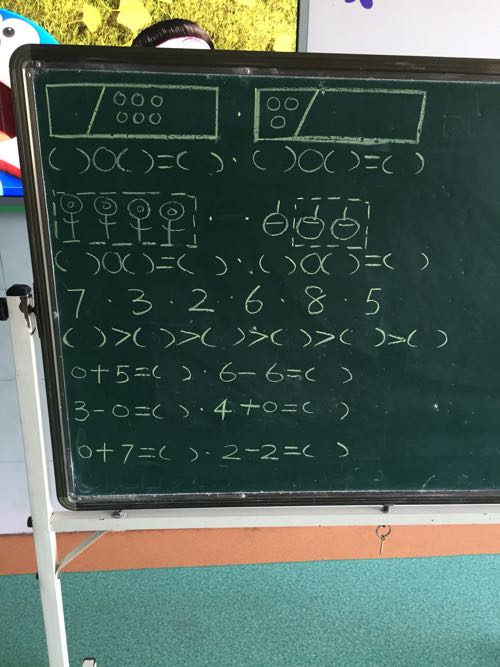 ( )○( )=( ) · ( )○( )=( )
( )○( )=( ) · ( )○( )=( )
7 · 3 · 2 · 6 · 8 · 5
( )>( )>( )>( )>( )>( )
0+5=( ) · 6-6=( )
3-0=( ) · 4+0=( )
0+7=( ) · 2-2=( )